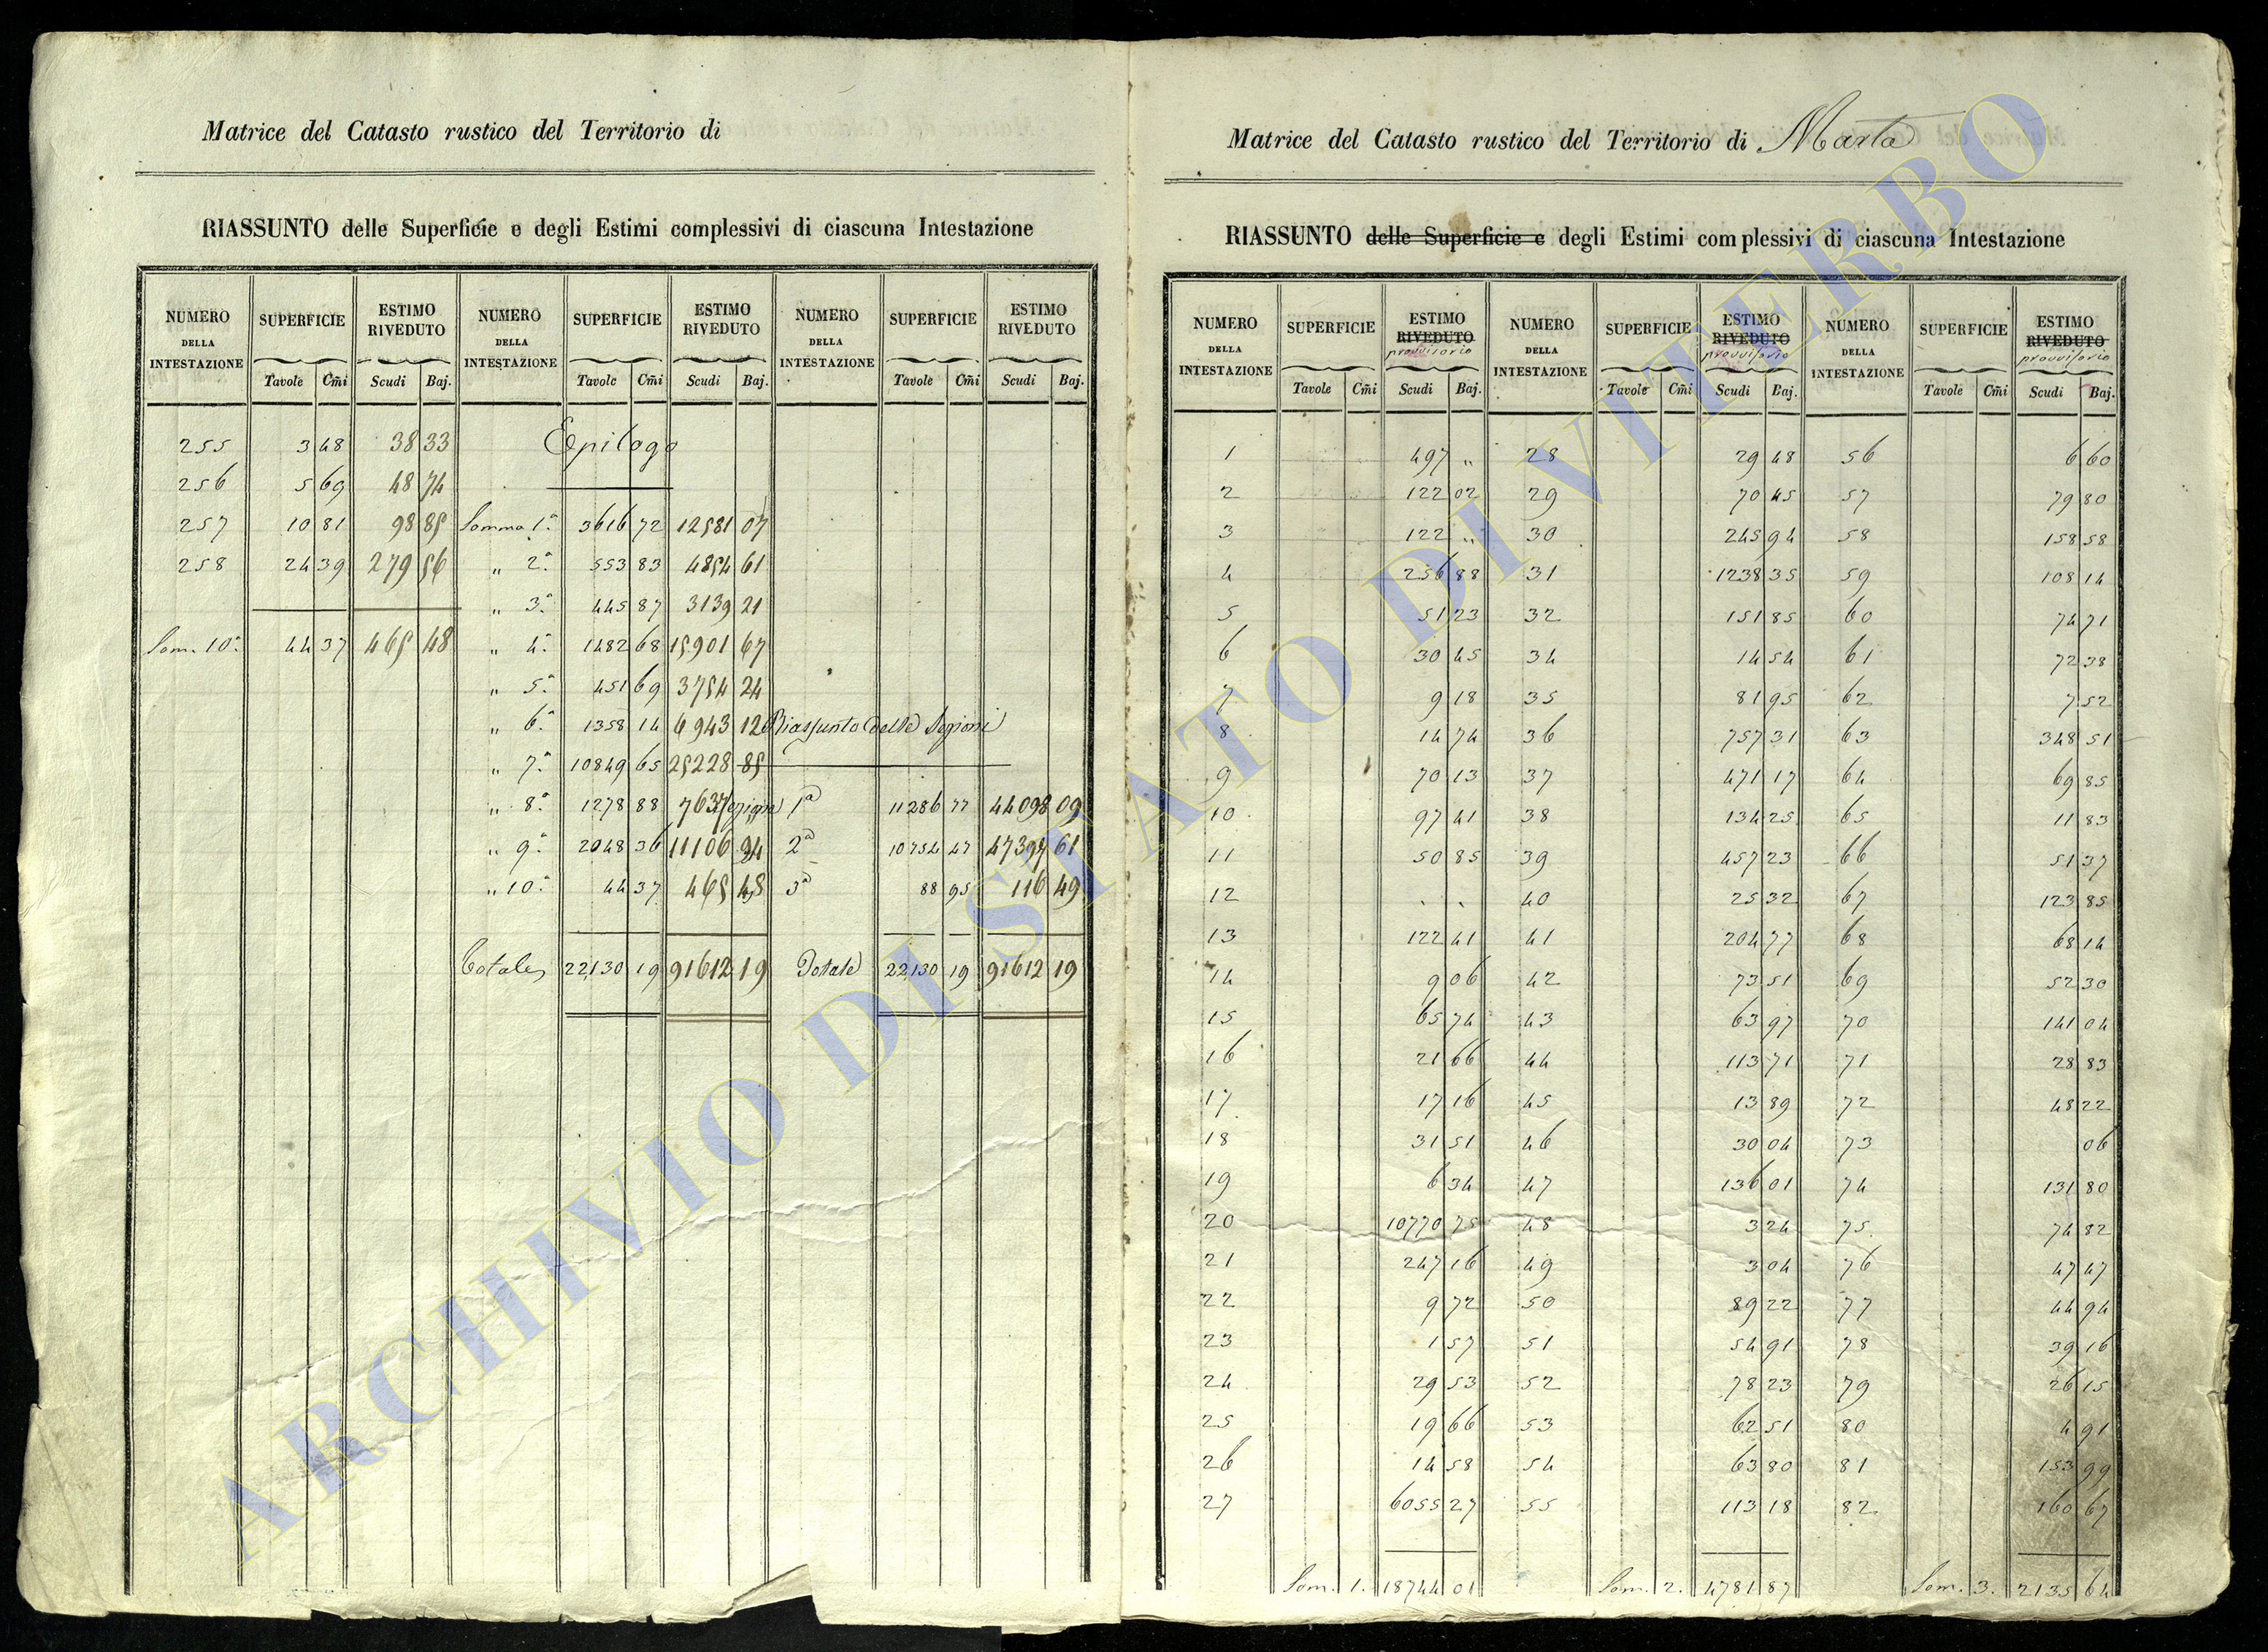 Matrice del Catasto rustico del Territorio di
RIASSUNTO delle Superficie e degli Estimi complessivi di ciascuna Intestazione
NUMERO DELLA INTESTAZIONE SUPERFICIE ESTIMO RIVEDUTO NUMERO DELLA INTESTAZIONE SUPERFICIE ESTIMO RIVEDUTO NUMERO DELLA INTESTAZIONE SUPERFICIE ESTIMO RIVEDUTO
Tavole Cm̃i Scudi Baj. Tavole Cm̃i Scudi Baj. Tavole Cm̃i Scudi Baj.
255 3 48 38 33 Epilogo
256 5 69 48 74
257 10 81 98 85 Somma 1.ª 3616 72 12581 07
258 24 39 279 56 „ 2.ª 553 83 4854 61
„ 3.ª 445 87 3139 21
Som. 10.ª 44 37 465 48 „ 4.ª 1482 68 15901 67
„ 5.ª 451 69 3754 24
„ 6.ª 1358 14 6943 12 Riassunto delle Sezioni
„ 7.ª 10849 65 25228 85
„ 8.ª 1278 88 7637 1ª 11286 77 44098 09
„ 9.ª 2048 36 11106 94 2ª 10754 47 47397 61
„ 10.ª 44 37 465 48 3ª 88 95 116 49
Totale 22130 19 91612 19 Totale 22130 19 91612 19
Matrice del Catasto rustico del Territorio di Marta
RIASSUNTO delle Superficie e degli Estimi complessivi di ciascuna Intestazione
NUMERO DELLA INTESTAZIONE SUPERFICIE ESTIMO RIVEDUTO provvisorio NUMERO DELLA INTESTAZIONE SUPERFICIE ESTIMO RIVEDUTO provvisorio NUMERO DELLA INTESTAZIONE SUPERFICIE ESTIMO RIVEDUTO provvisorio
Tavole Cm̃i Scudi Baj. Tavole Cm̃i Scudi Baj. Tavole Cm̃i Scudi Baj.
1 497 „ 28 29 48 56 6 60
2 122 02 29 70 45 57 79 80
3 122 „ 30 245 94 58 158 58
4 256 88 31 1238 35 59 108 14
5 51 23 32 151 85 60 74 71
6 30 45 34 14 54 61 72 38
7 9 18 35 81 95 62 7 52
8 14 74 36 757 31 63 348 51
9 70 13 37 471 17 64 69 85
10 97 41 38 134 25 65 11 83
11 50 85 39 457 23 66 51 37
12 . . 40 25 32 67 123 85
13 122 41 41 204 77 68 68 14
14 9 06 42 73 51 69 52 30
15 65 74 43 63 97 70 141 04
16 21 66 44 113 71 71 28 83
17 17 16 45 13 89 72 48 22
18 31 51 46 30 04 73 06
19 6 34 47 136 01 74 131 80
20 10770 75 48 3 24 75 74 82
21 247 16 49 3 04 76 47 47
22 9 72 50 89 22 77 44 94
23 1 57 51 54 91 78 39 16
24 29 53 52 78 23 79 26 15
25 19 66 53 62 51 80 4 91
26 14 58 54 63 80 81 153 99
27 6055 27 55 113 18 82 160 67
Som. 1. 18744 01 Som. 2. 4781 87 Som. 3. 2135 64
ARCHIVIO DI STATO DI VITERBO